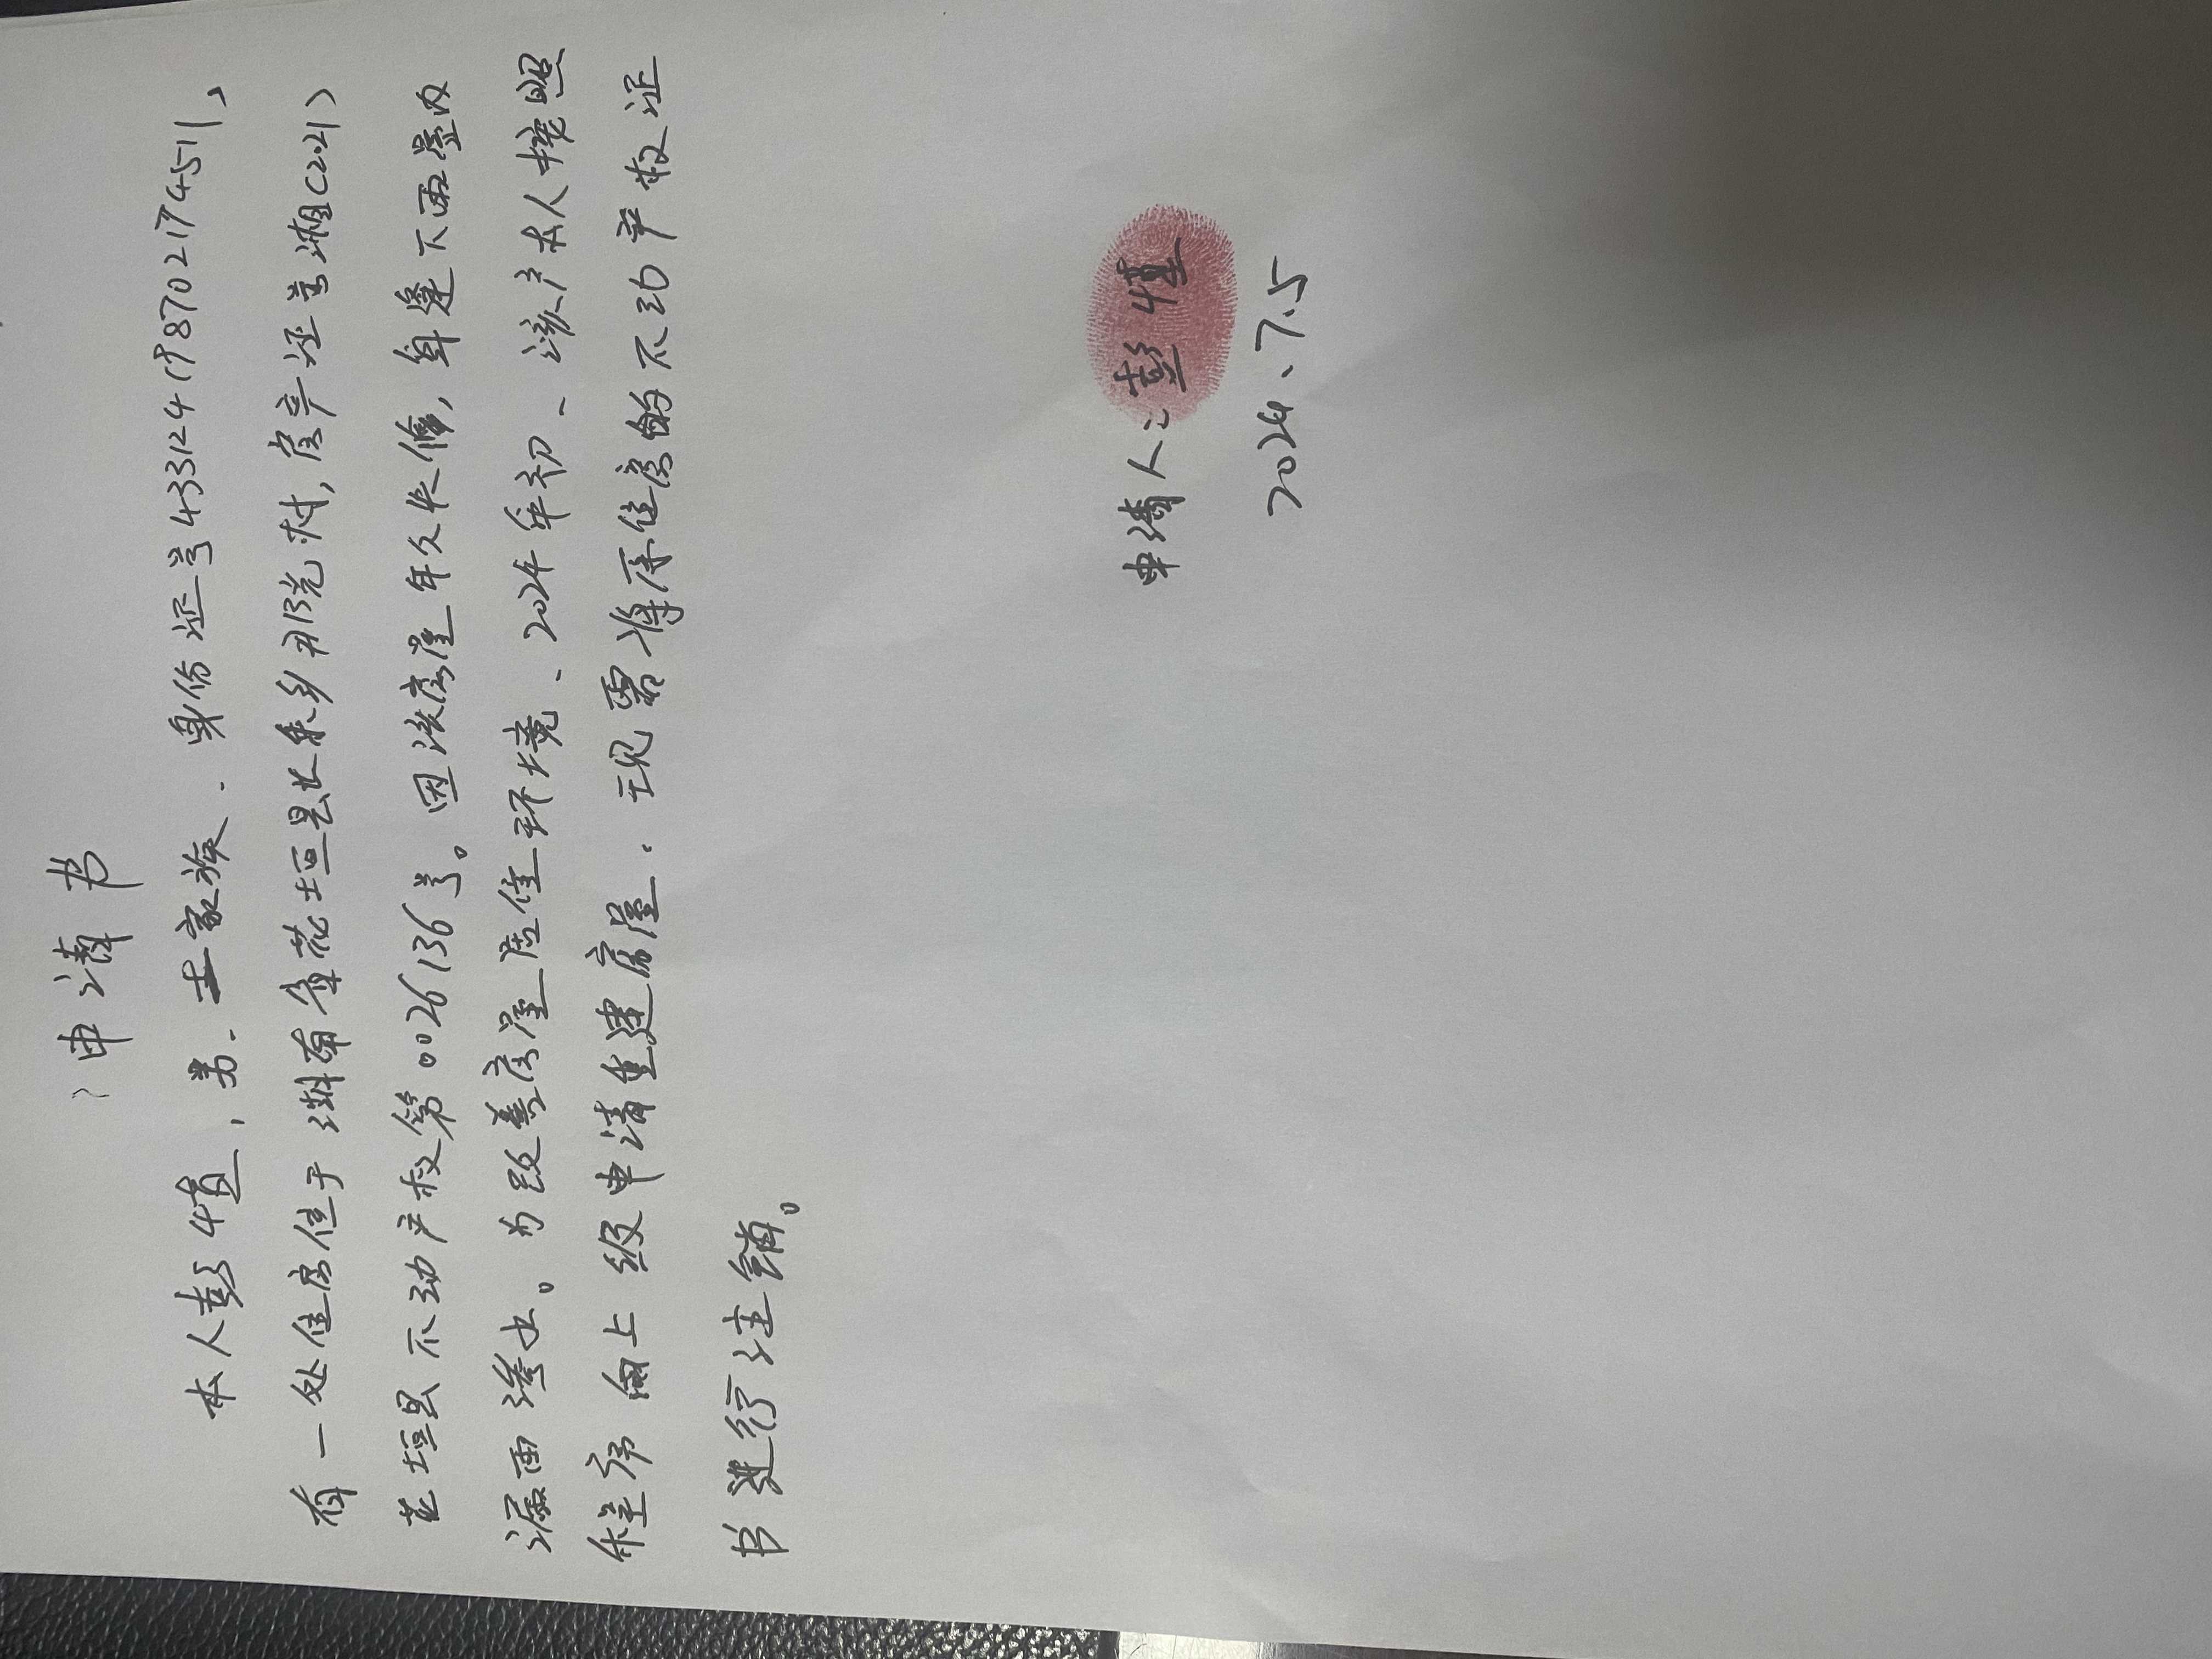 申请书
本人彭植、男、土家族、身份证号433124198702174511、
有一处住房位于湖南省花垣县长乐乡那洞村,房产证号湘(2021)
花垣县不动产权第0026136号。因该房屋年久失修,每逢下雨屋内
漏雨渗水。为改善房屋居住环境、2024年初、该户本人按照
程序向上级申请重建房屋、现需将原住房的不动产权证
书进行注销。
申请人:彭植
2024、7.5